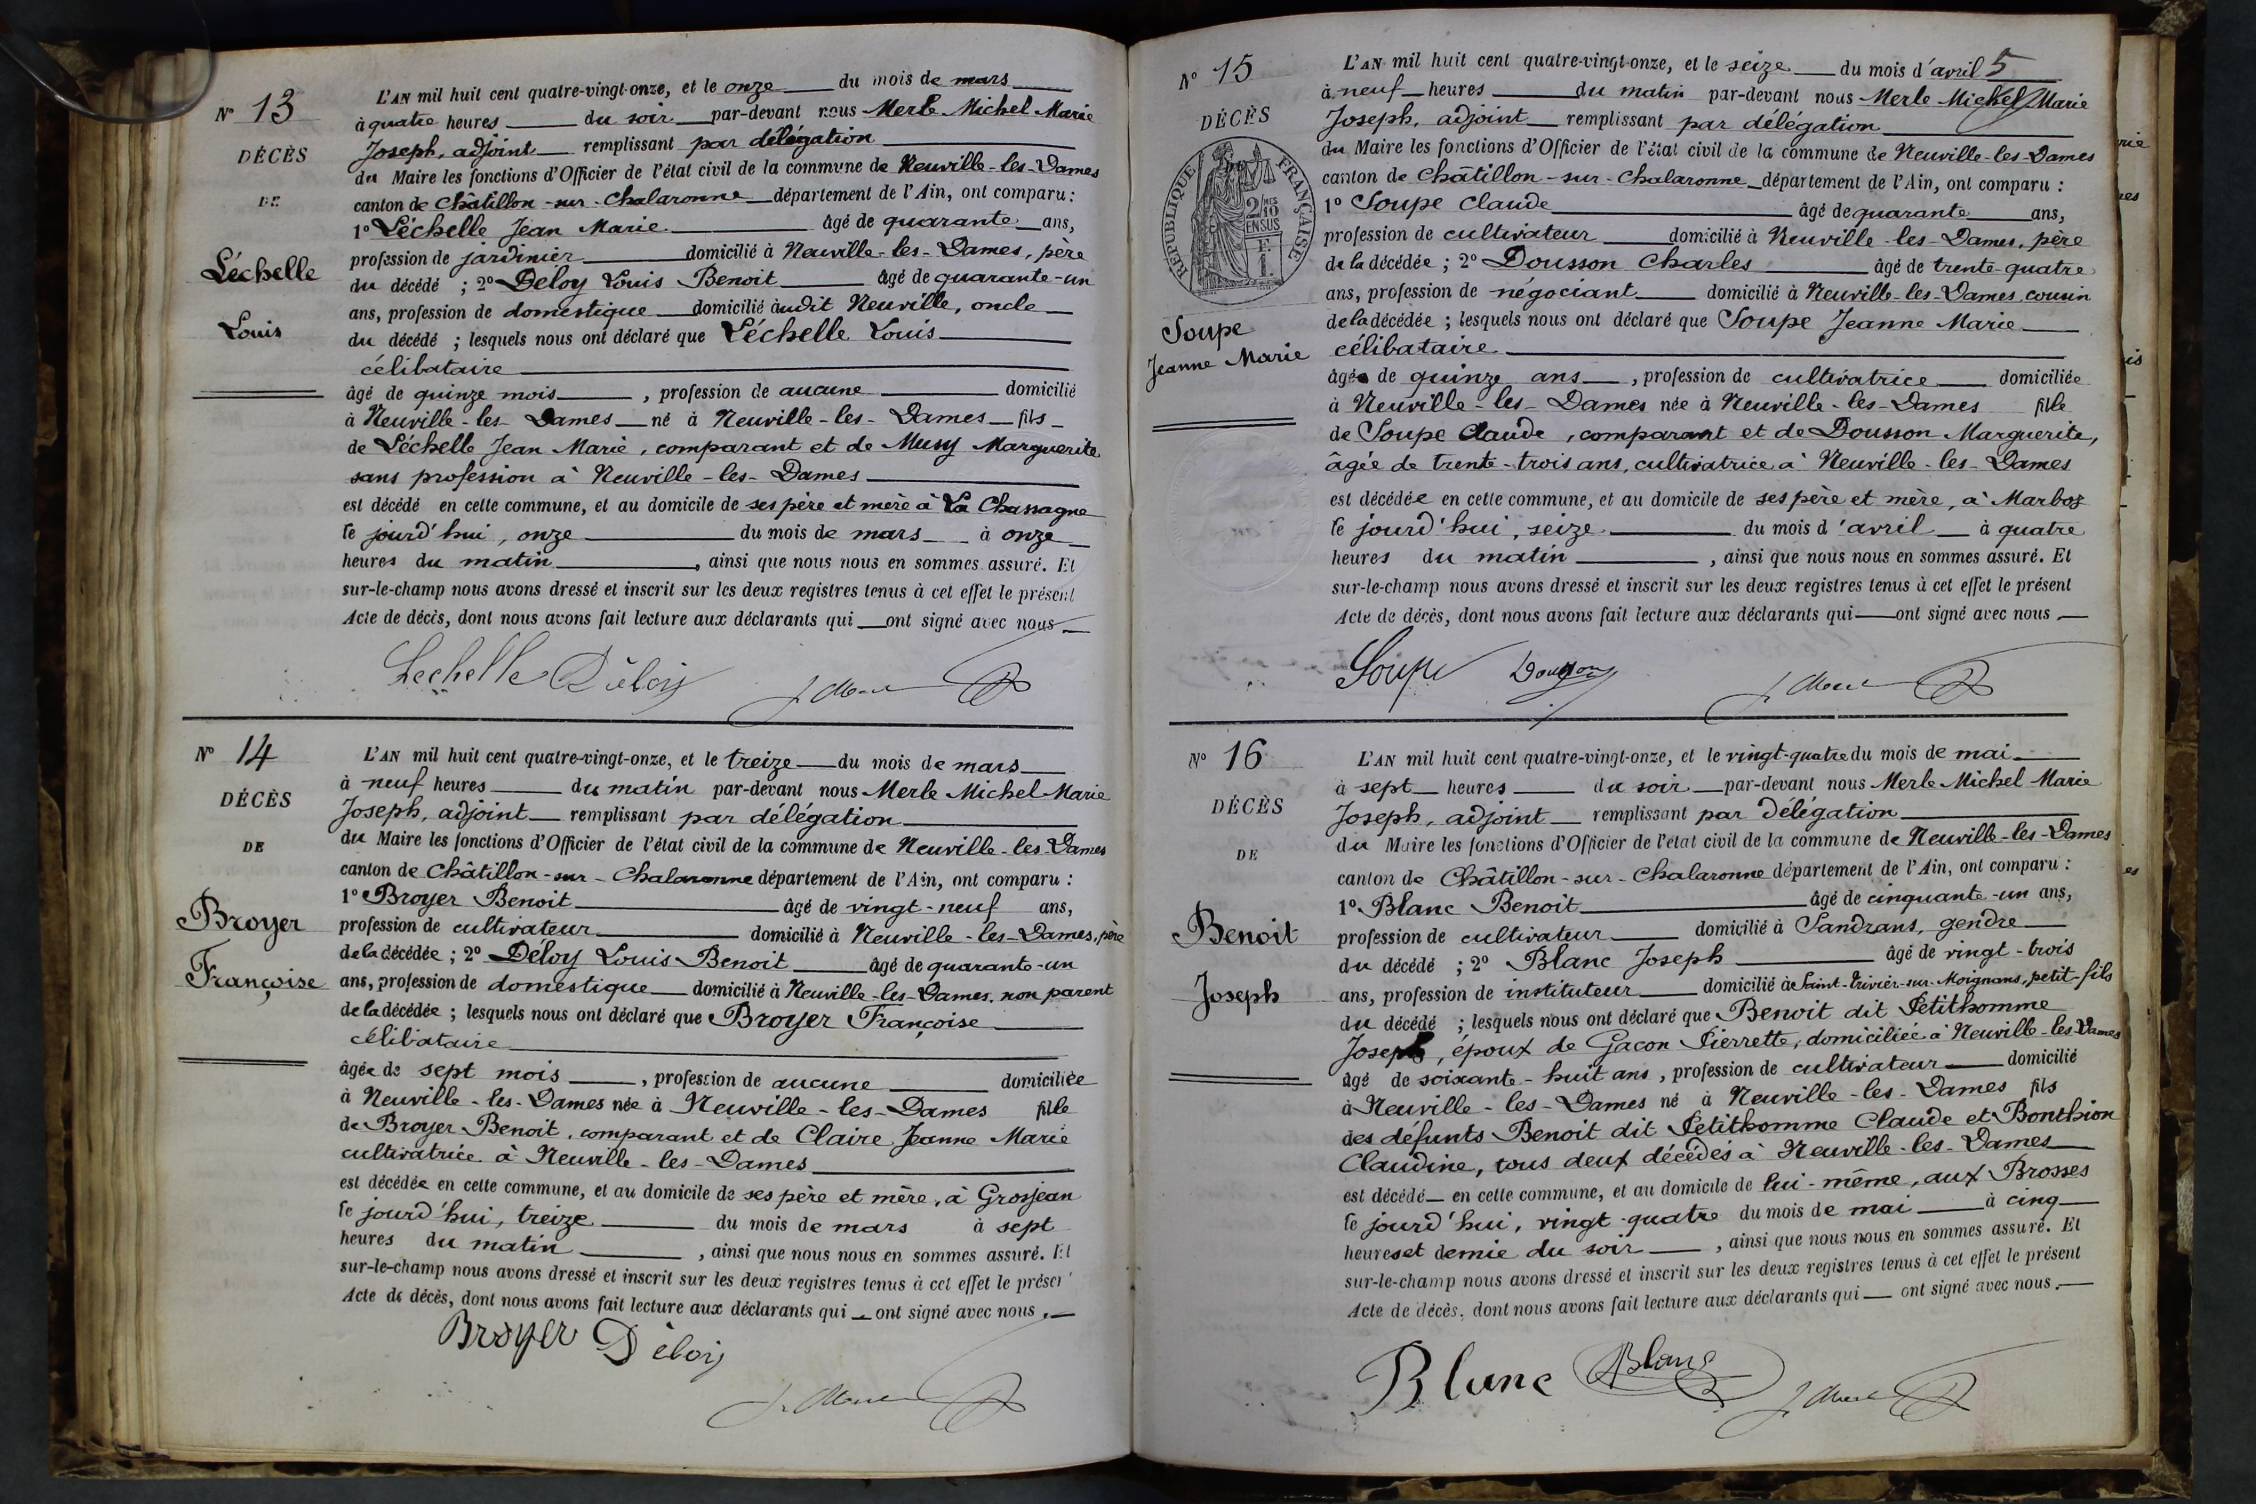 N° 13
DÉCÈS
DE
Léchelle
Louis
L'AN mil huit cent quatre-vingt-onze, et le onze du mois de mars
à quatre heures du soir par-devant nous Merle Michel Marie
Joseph, adjoint remplissant par délégation
du Maire les fonctions d'Officier de l'état civil de la commune de Neuville-les-Dames
canton de Châtillon-sur-Chalaronne département de l'Ain, ont comparu :
1° Léchelle Jean Marie âgé de quarante ans,
profession de jardinier domicilié à Neuville-les-Dames, père
du décédé ; 2° Déloy Louis Benoit âgé de quarante-un
ans, profession de domestique domicilié audit Neuville, oncle
du décédé ; lesquels nous ont déclaré que Léchelle Louis
célibataire
âgé de quinze mois, profession de aucune domicilié
à Neuville-les-Dames né à Neuville-les-Dames fils
de Léchelle Jean Marie, comparant et de Musy Marguerite
sans profession à Neuville-les-Dames
est décédé en cette commune, et au domicile de ses père et mère à La Chassagne
le jourd'hui, onze du mois de mars à onze
heures du matin, ainsi que nous nous en sommes assuré. Et
sur-le-champ nous avons dressé et inscrit sur les deux registres tenus à cet effet le présent
Acte de décès, dont nous avons fait lecture aux déclarants qui ont signé avec nous
Lechelle Déloy
N° 14
DÉCÈS
DE
Broyer
Françoise
L'AN mil huit cent quatre-vingt-onze, et le treize du mois de mars
à neuf heures du matin par-devant nous Merle Michel Marie
Joseph, adjoint remplissant par délégation
du Maire les fonctions d'Officier de l'état civil de la commune de Neuville-les-Dames
canton de Châtillon-sur-Chalaronne département de l'Ain, ont comparu :
1° Broyer Benoit âgé de vingt-neuf ans,
profession de cultivateur domicilié à Neuville-les-Dames, père
de la décédée ; 2° Déloy Louis Benoit âgé de quarante-un
ans, profession de domestique domicilié à Neuville-les-Dames, non parent
de la décédée ; lesquels nous ont déclaré que Broyer Françoise
célibataire
âgée de sept mois, profession de aucune domiciliée
à Neuville-les-Dames née à Neuville-les-Dames fille
de Broyer Benoit, comparant et de Claire Jeanne Marie
cultivatrice à Neuville-les-Dames
est décédée en cette commune, et au domicile de ses père et mère, à Grosjean
le jourd'hui, treize du mois de mars à sept
heures du matin, ainsi que nous nous en sommes assuré. Et
sur-le-champ nous avons dressé et inscrit sur les deux registres tenus à cet effet le présent
Acte de décès, dont nous avons fait lecture aux déclarants qui ont signé avec nous.
Broyer Déloy
N° 15
DÉCÈS
RÉPUBLIQUE FRANÇAISE
2/10 EN SUS
Soupe
Jeanne Marie
L'AN mil huit cent quatre-vingt-onze, et le seize du mois d'avril 5
à neuf heures du matin par-devant nous Merle Michel Marie
Joseph, adjoint remplissant par délégation
du Maire les fonctions d'Officier de l'état civil de la commune de Neuville-les-Dames
canton de Châtillon-sur-Chalaronne département de l'Ain, ont comparu :
1° Soupe Claude âgé de quarante ans,
profession de cultivateur domicilié à Neuville-les-Dames, père
de la décédée ; 2° Dousson Charles âgé de trente-quatre
ans, profession de négociant domicilié à Neuville-les-Dames cousin
de la décédée ; lesquels nous ont déclaré que Soupe Jeanne Marie
célibataire
âgée de quinze ans, profession de cultivatrice domiciliée
à Neuville-les-Dames née à Neuville-les-Dames fille
de Soupe Claude, comparant et de Dousson Marguerite,
âgée de trente-trois ans, cultivatrice à Neuville-les-Dames
est décédée en cette commune, et au domicile de ses père et mère, à Marboz
le jourd'hui, seize du mois d'avril à quatre
heures du matin, ainsi que nous nous en sommes assuré. Et
sur-le-champ nous avons dressé et inscrit sur les deux registres tenus à cet effet le présent
Acte de décès, dont nous avons fait lecture aux déclarants qui ont signé avec nous.
Soupe Dousson
N° 16
DÉCÈS
DE
Benoit
Joseph
L'AN mil huit cent quatre-vingt-onze, et le vingt-quatre du mois de mai
à sept heures du soir par-devant nous Merle Michel Marie
Joseph, adjoint remplissant par délégation
du Maire les fonctions d'Officier de l'état civil de la commune de Neuville-les-Dames
canton de Châtillon-sur-Chalaronne département de l'Ain, ont comparu :
1° Blanc Benoit âgé de cinquante-un ans,
profession de cultivateur domicilié à Sandrans, gendre
du décédé ; 2° Blanc Joseph âgé de vingt-trois
ans, profession de instituteur domicilié à Saint-Trivier-sur-Moignans, petit-fils
du décédé ; lesquels nous ont déclaré que Benoit dit Petithomme
Joseph, époux de Gacon Pierrette, domiciliée à Neuville-les-Dames
âgé de soixante-huit ans, profession de cultivateur domicilié
à Neuville-les-Dames né à Neuville-les-Dames fils
des défunts Benoit dit Petithomme Claude et Bonthion
Claudine, tous deux décédés à Neuville-les-Dames
est décédé en cette commune, et au domicile de lui-même, aux Brosses
le jourd'hui, vingt-quatre du mois de mai à cinq
heures et demie du soir, ainsi que nous nous en sommes assuré. Et
sur-le-champ nous avons dressé et inscrit sur les deux registres tenus à cet effet le présent
Acte de décès, dont nous avons fait lecture aux déclarants qui ont signé avec nous.
Blanc Blanc